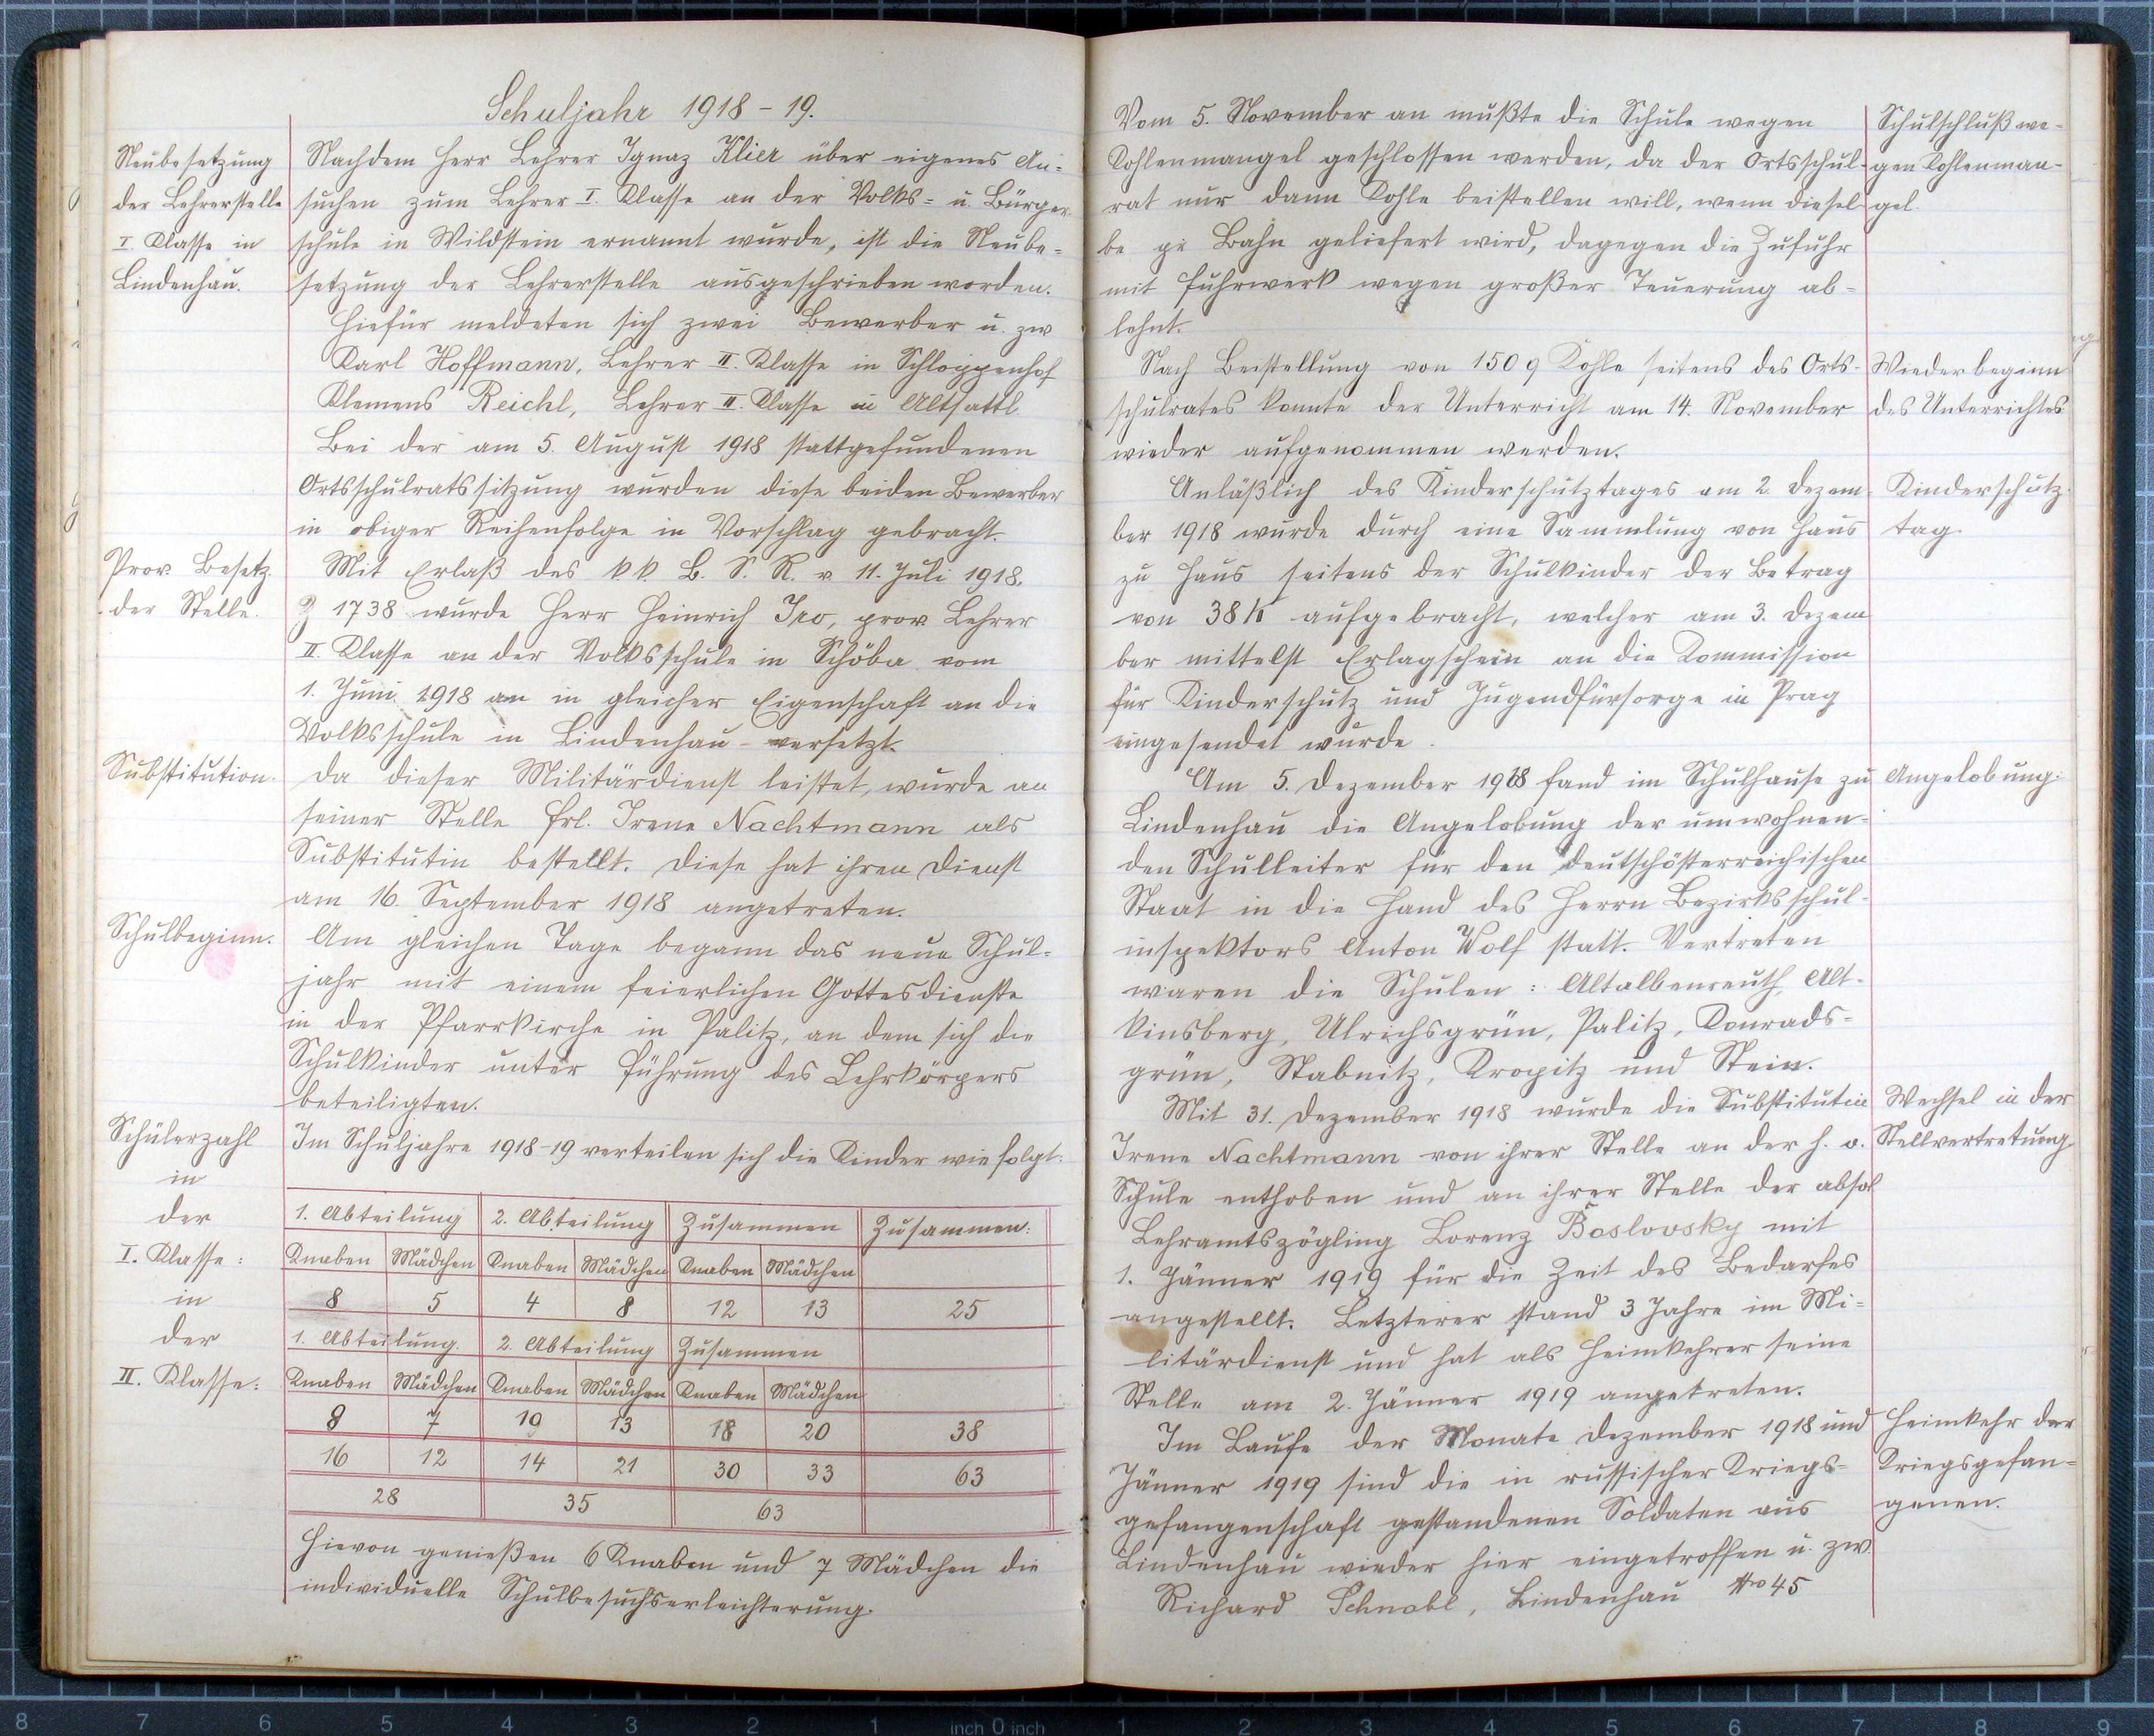 Schuljahr 1918 - 19.
Neubesetzung
der Lehrerstelle
I. Klasse in
Lindenhau.
Nachdem Herr Lehrer Ignaz Klier über eigenes An-
suchen zum Lehrer I. Klasse an der Volks- u. Bürger-
schule in Wildstein ernannt wurde, ist die Neube-
setzung der Lehrerstelle ausgeschrieben worden.
Hiefür meldeten sich zwei Bewerber u. zw
Karl Hoffmann, Lehrer II. Klasse in Schloppenhof
Klemens Reichl, Lehrer II. Klasse in Altsattl
Bei der am 5. August 1918 stattgefundenen
Ortsschulratssitzung wurden diese beiden Bewerber
in obiger Reihenfolge in Vorschlag gebracht.
Prov. Besetz.
der Stelle.
Mit Erlaß des k.k. B. S. R. v. 11. Juli 1918.
Z 1738 wurde Herr Heinrich Iro, prov. Lehrer
II. Klasse an der Volksschule in Schöba vom
1. Juni 1918 an in gleicher Eigenschaft an die
Volksschule in Lindenhau versetzt.
Substitution.
Da dieser Militärdienst leistet, wurde an
seiner Stelle Frl. Irene Nachtmann als
Substitutin bestellt. Diese hat ihren Dienst
am 16. September 1918 angetreten.
Schulbeginn.
Am gleichen Tage begann das neue Schul-
jahr mit einem feierlichen Gottesdienste
in der Pfarrkirche in Palitz, an dem sich die
Schulkinder unter Führung des Lehrkörpers
beteiligten.
Schülerzahl
in
der
I. Klasse:
in
der
II. Klasse:
Im Schuljahre 1918-19 verteilen sich die Kinder wie folgt:
1. Abteilung 2. Abteilung Zusammen Zusammen:
Knaben Mädchen Knaben Mädchen Knaben Mädchen
8 5 4 8 12 13 25
1. Abteilung. 2. Abteilung Zusammen
Knaben Mädchen Knaben Mädchen Knaben Mädchen
8 7 10 13 18 20 38
16 12 14 21 30 33 63
28 35 63
Hievon genießen 6 Knaben und 7 Mädchen die
individuelle Schulbesuchserleichterung.
Vom 5. November an mußte die Schule wegen
Kohlenmangel geschlossen werden, da der Ortsschul-
rat nur dann Kohle beistellen will, wenn diesel-
be pr Bahn geliefert wird, dagegen die Zufuhr
mit Fuhrwerk wegen großer Teuerung ab-
lehnt.
Schulschluß we-
gen Kohlenman-
gel.
Nach Beistellung von 150 q Kohle seitens des Orts-
schulrates konnte der Unterricht am 14. November
wieder aufgenommen werden.
Wiederbeginn
des Unterrichtes
Anläßlich des Kinderschutztages am 2. Dezem-
ber 1918 wurde durch eine Sammlung von Haus
zu Haus seitens der Schulkinder der Betrag
von 38 K aufgebracht, welcher am 3. Dezem
ber mittelst Erlagschein an die Kommission
für Kinderschutz und Jugendfürsorge in Prag
eingesendet wurde.
Kinderschutz-
tag.
Am 5. Dezember 1918 fand im Schulhause zu
Lindenhau die Angelobung der umwohnen-
den Schulleiter für den deutschösterreichischen
Staat in die Hand des Herrn Bezirksschul-
inspektors Anton Wolf statt. Vertreten
waren die Schulen: Altalbenreuth, Alt-
kinsberg, Ulrichsgrün, Palitz, Konrads-
grün, Stabnitz, Kropitz und Stein.
Angelobung.
Mit 31. Dezember 1918 wurde die Substitutin
Irene Nachtmann von ihrer Stelle an der h. o.
Schule enthoben und an ihrer Stelle der absol
Lehramtszögling Lorenz Boslovsky mit
1. Jänner 1919 für die Zeit des Bedarfes
angestellt. Letzterer stand 3 Jahre im Mi-
litärdienst und hat als Heimkehrer seine
Stelle am 2. Jänner 1919 angetreten.
Wechsel in der
Stellvertretung
Im Laufe der Monate Dezember 1918 und
Jänner 1919 sind die in russischer Kriegs-
gefangenschaft gestandenen Soldaten aus
Lindenhau wieder hier eingetroffen u. zw.
Richard Schnabl, Lindenhau Nro 45
Heimkehr der
Kriegsgefan-
genen.
8 7 6 5 4 3 2 1 inch 0 inch 1 2 3 4 5 6 7 8 9